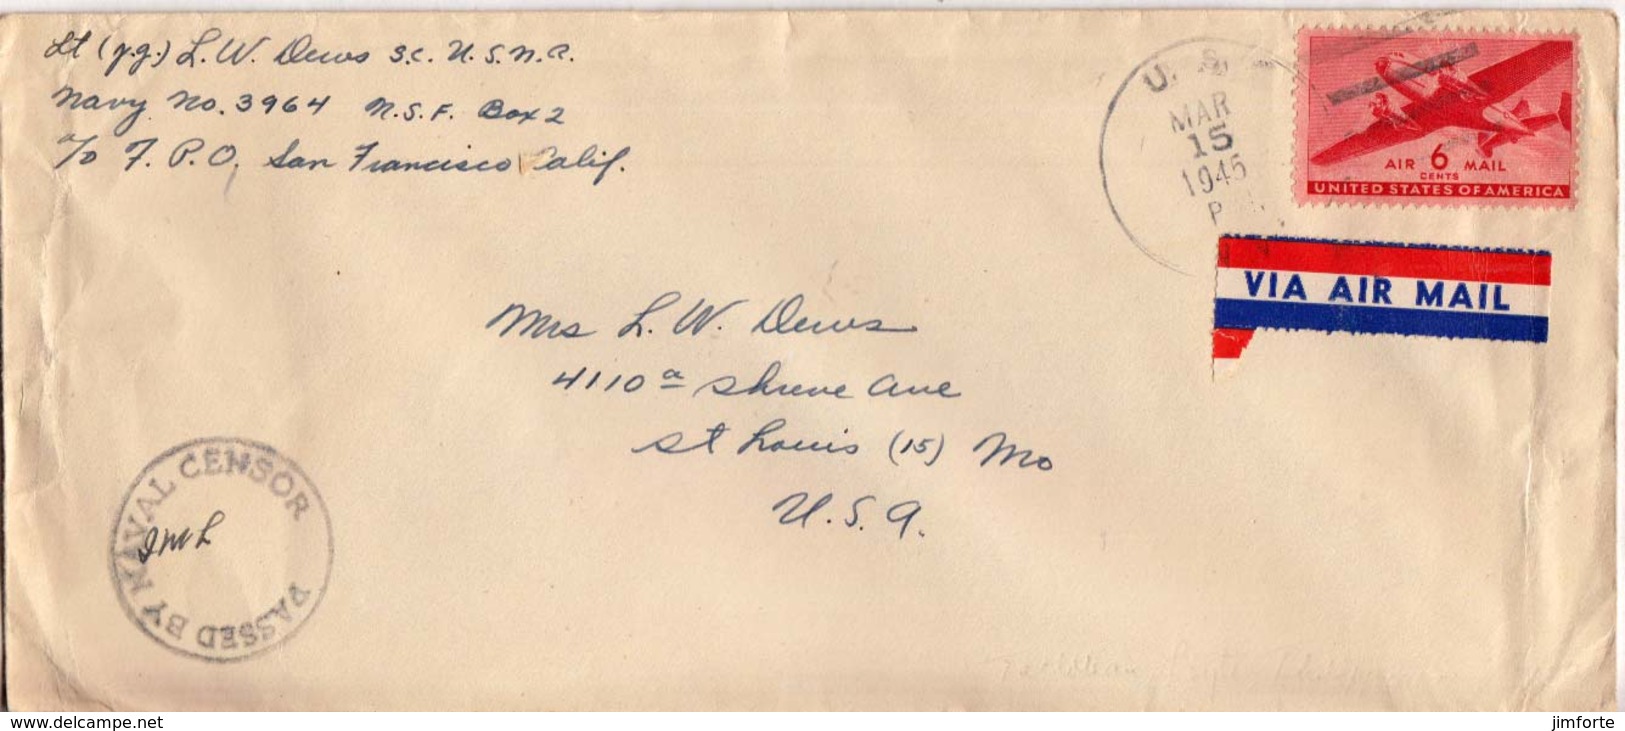 Lt (j.g.) L. W. Dews S.C. U.S.N.R.
Navy No. 3964 N.S.F. Box 2
c/o F.P.O. San Francisco Calif.
U. S.
MAR
15
1945
P
AIR 6 MAIL
CENTS
UNITED STATES OF AMERICA
VIA AIR MAIL
Mrs L. W. Dews
4110a Shreve Ave
St Louis (15) Mo
U.S.A.
PASSED BY NAVAL CENSOR
Philippines
delcampe.net
jimforte